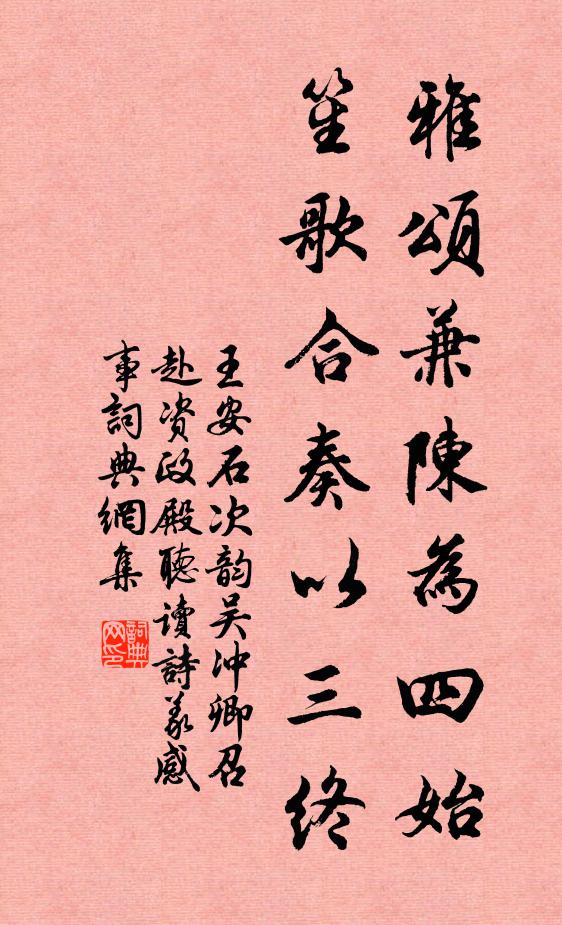 雅頌兼陳為四始
笙歌合奏以三終
王安石次韵吴冲卿召
赴资政殿聽讀詩義感
事詞典網集
詞典网印